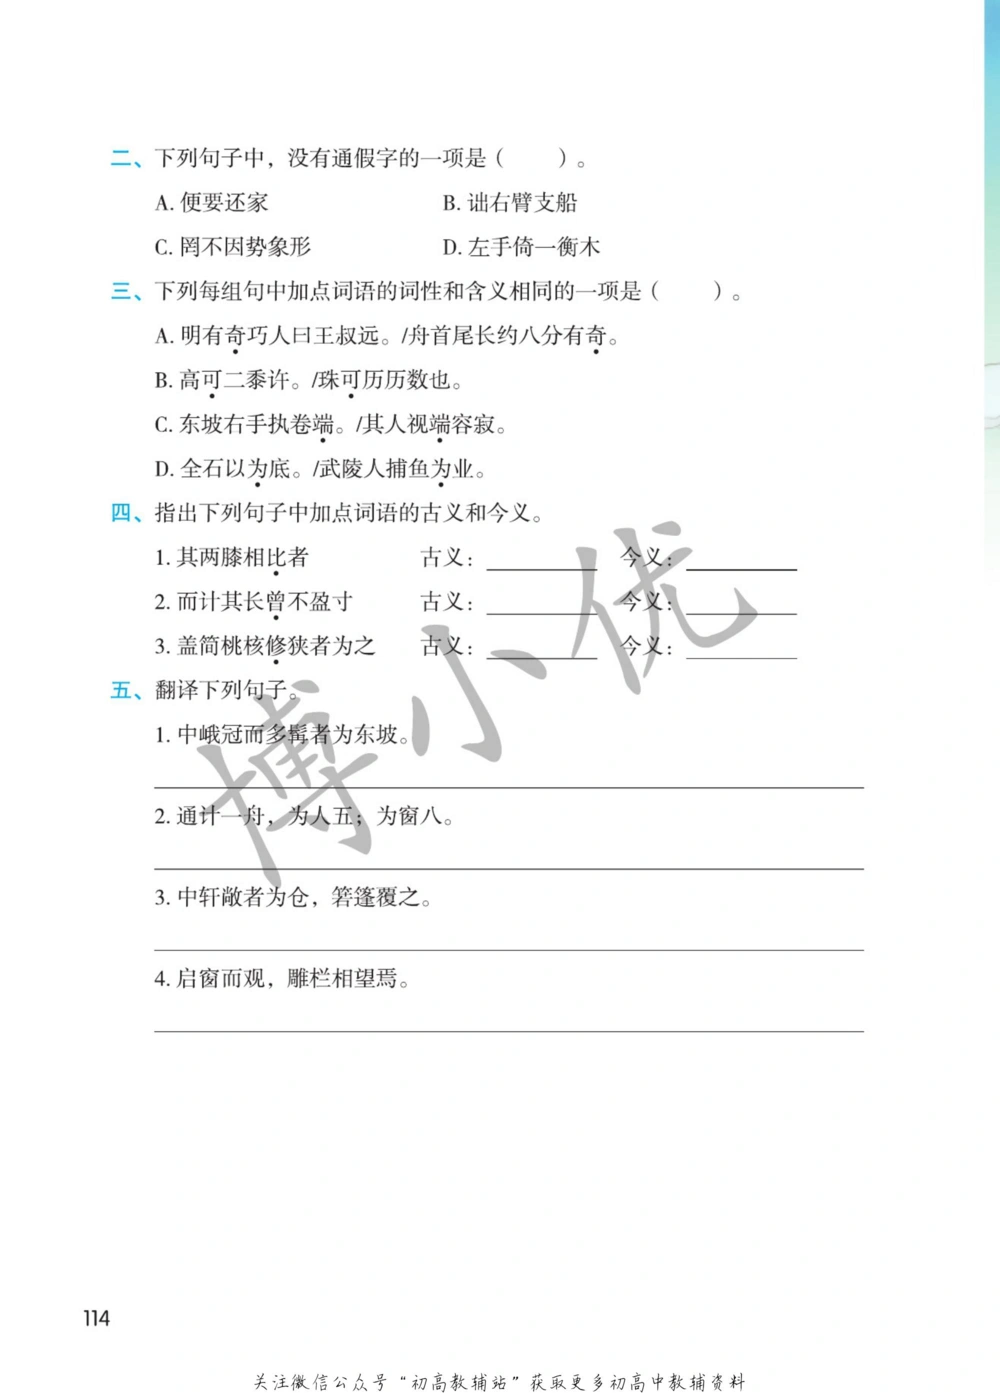 二、下列句子中，没有通假字的一项是（　　）。
A. 便要还家　　B. 诎右臂支船
C. 罔不因势象形　　D. 左手倚一衡木
三、下列每组句中加点词语的词性和含义相同的一项是（　　）。
A. 明有奇巧人曰王叔远。/舟首尾长约八分有奇。
B. 高可二黍许。/珠可历历数也。
C. 东坡右手执卷端。/其人视端容寂。
D. 全石以为底。/武陵人捕鱼为业。
四、指出下列句子中加点词语的古义和今义。
1. 其两膝相比者　　古义：　　今义：
2. 而计其长曾不盈寸　　古义：　　今义：
3. 盖简桃核修狭者为之　　古义：　　今义：
五、翻译下列句子。
1. 中峨冠而多髯者为东坡。
2. 通计一舟，为人五；为窗八。
3. 中轩敞者为仓，箬篷覆之。
4. 启窗而观，雕栏相望焉。
博小优
114
关注微信公众号“初高教辅站”获取更多初高中教辅资料